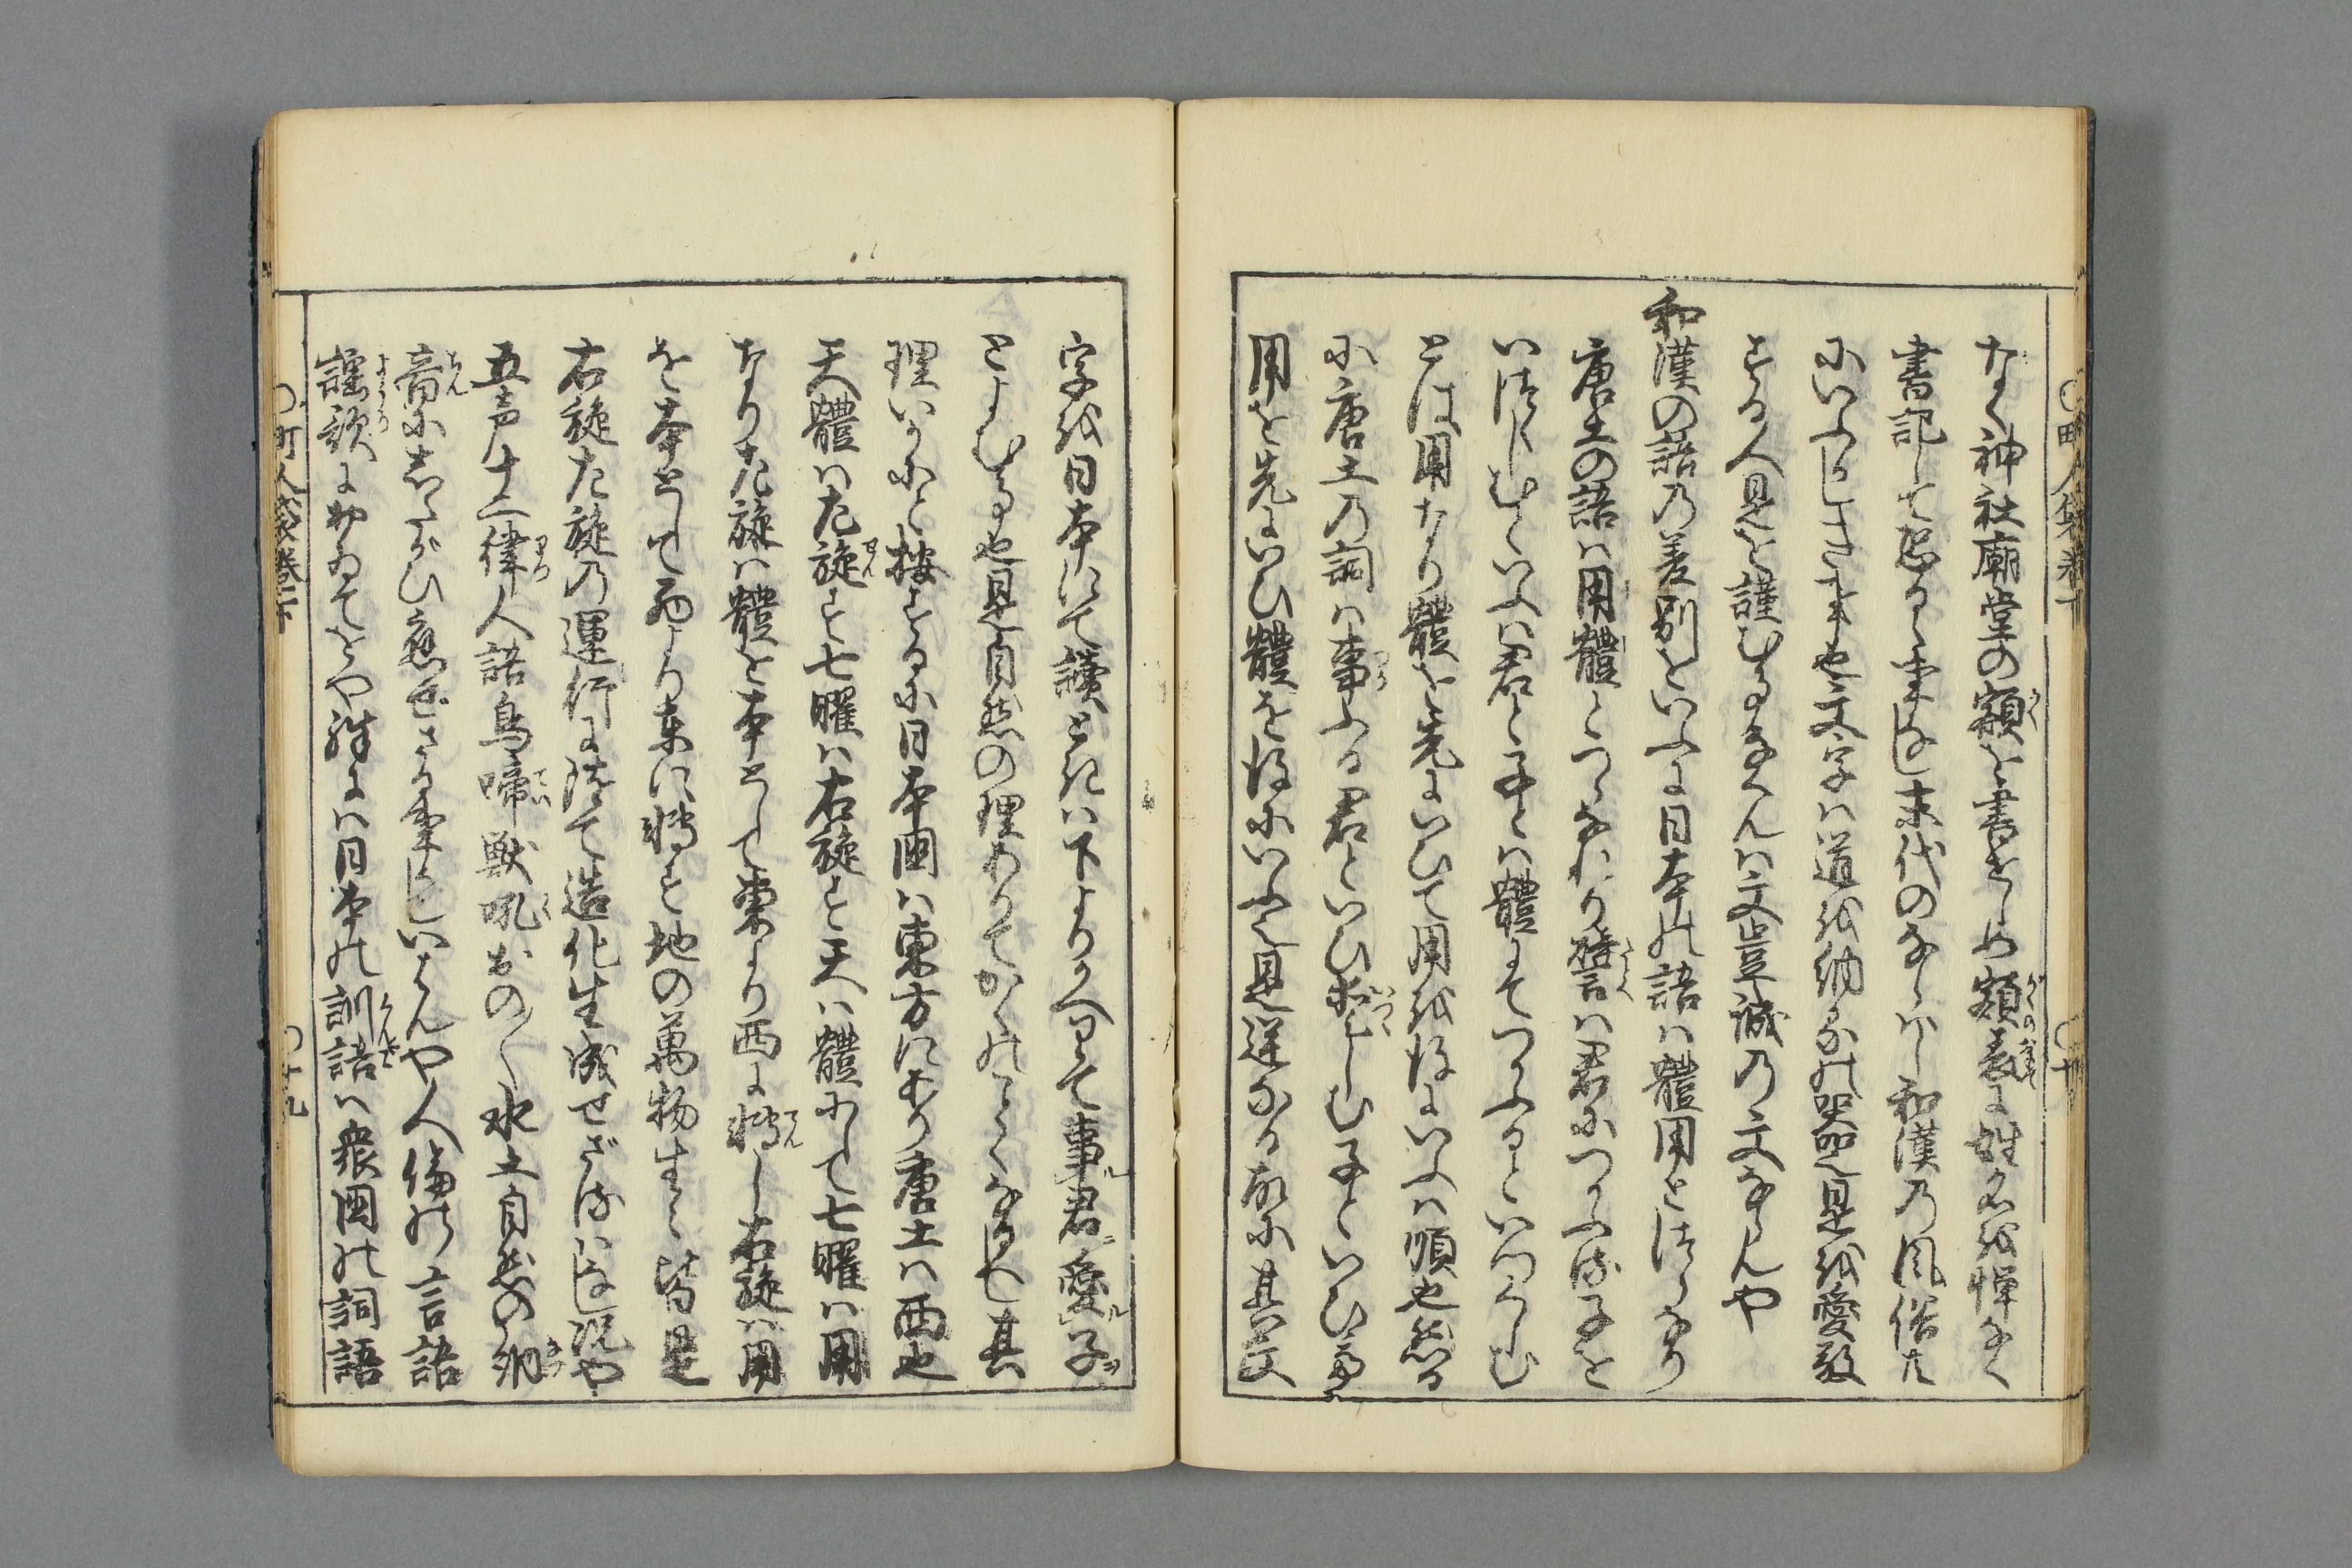 なく神社廟堂の額を書そめ額表に姓名を憚なく
書記して恐るゝ事なし末代のならはし和漢乃風俗共
にいふかしき事也文字は道を納るの器也是を愛敬
する人是を謹むるならんは文豈誠乃文ならんや
和漢の語乃差別をいふに日本の語は體用とつらなり
唐土の語は用體とつらなれり譬は君につかふる子を
いつくしむといふは君と子とは體にてつかふるといつくしむ
とは用なり體を先にいひて用を後にいふは順也然る
に唐土乃詞は事ふる君といひ愛しむ子といひて
用を先にいひ體を後にいふ是逆なる故に其文
字を日本にて讀ときは下よりかへりて事君愛子
とよむる也是自然の理ありてかくのことくなるべし其
理いかにと按するに日本国は東方にあり唐土は西也
天體は左旋す七曜は右旋す天は體にして七曜は用
なり左旋は體を本として東より西に轉し右旋は用
を本として西より東に轉す地の萬物生々皆是
右旋左旋乃運行に隨て造化生成せざるはなし況や
五声十二律人語鳥啼獣吼おの〱水土自然の納
音にしたがひ應ぜざる事なしいはんや人倫の言語
謡歌にゆゐてをや殊には日本の訓語は衆国の詞語
町人袋巻二下